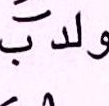 ولد ب